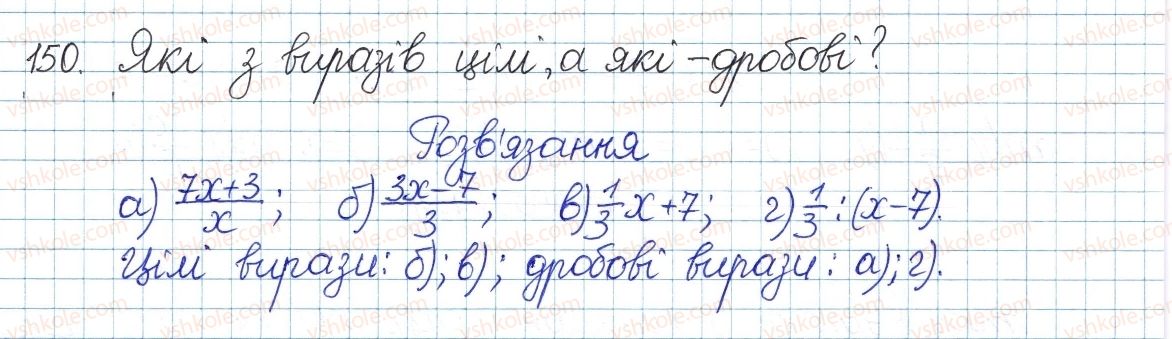 150. Які з виразів цілі, а які – дробові?
Розв'язання
а) (7x+3)/x; б) (3x−7)/3; в) 1/3 x+7; г) 1/3 : (x−7).
Цілі вирази: б); в); дробові вирази: а); г).